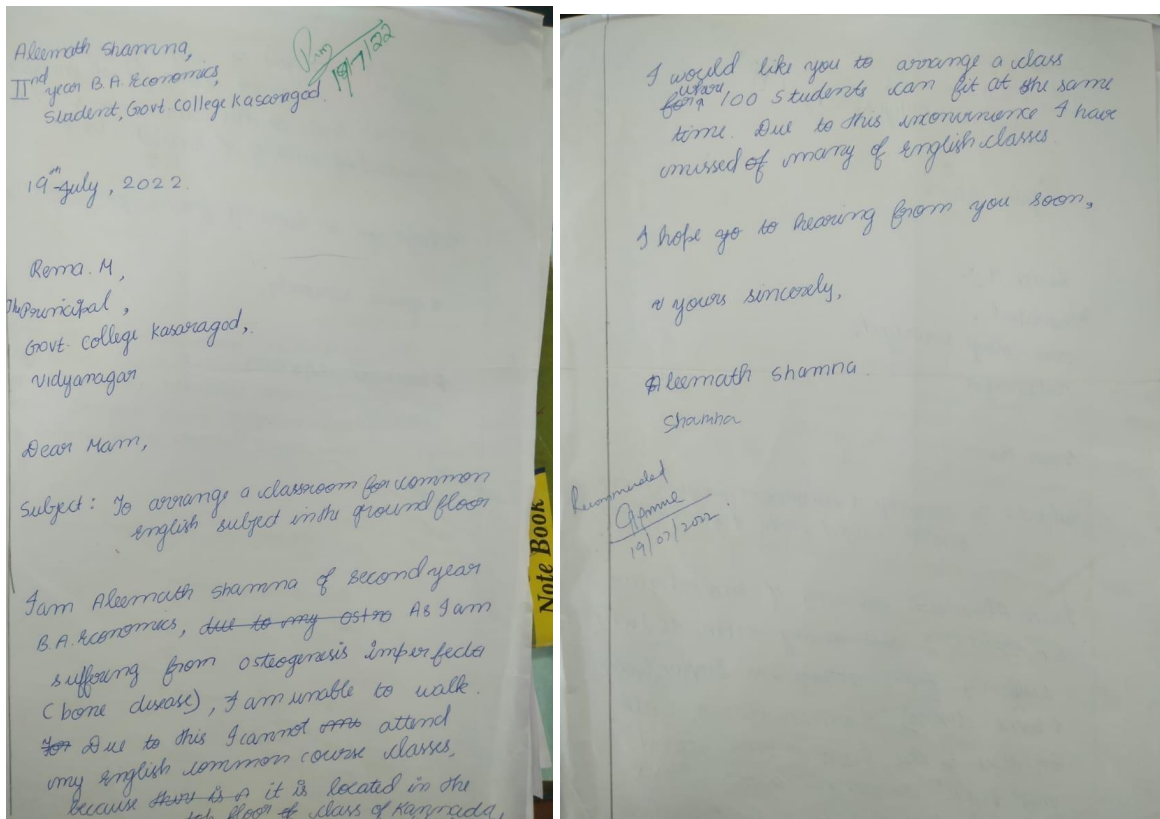 Aleemath Shamna,
IInd year B.A. Economics,
Student, Govt. College Kasaragod.
18/7/22
19th July, 2022.
Rema. M,
The Principal,
Govt. College Kasaragod,
Vidyanagar
Dear Mam,
Subject: To arrange a classroom for common
English subject in the ground floor
I am Aleemath Shamna of second year
B.A. Economics, due to my ostro As I am
suffering from osteogenesis imperfecta
(bone disease), I am unable to walk.
Due to this I cannot attend
my English common course classes.
because it is located in the
top floor of class of Kannada,
Note Book
I would like you to arrange a class
for where 100 students can fit at the same
time. Due to this inconvinience I have
missed of many of English classes.
I hope yo to hearing from you soon,
Yours sincerely,
Aleemath Shamna
Shamna
Recommended
19/07/2022.